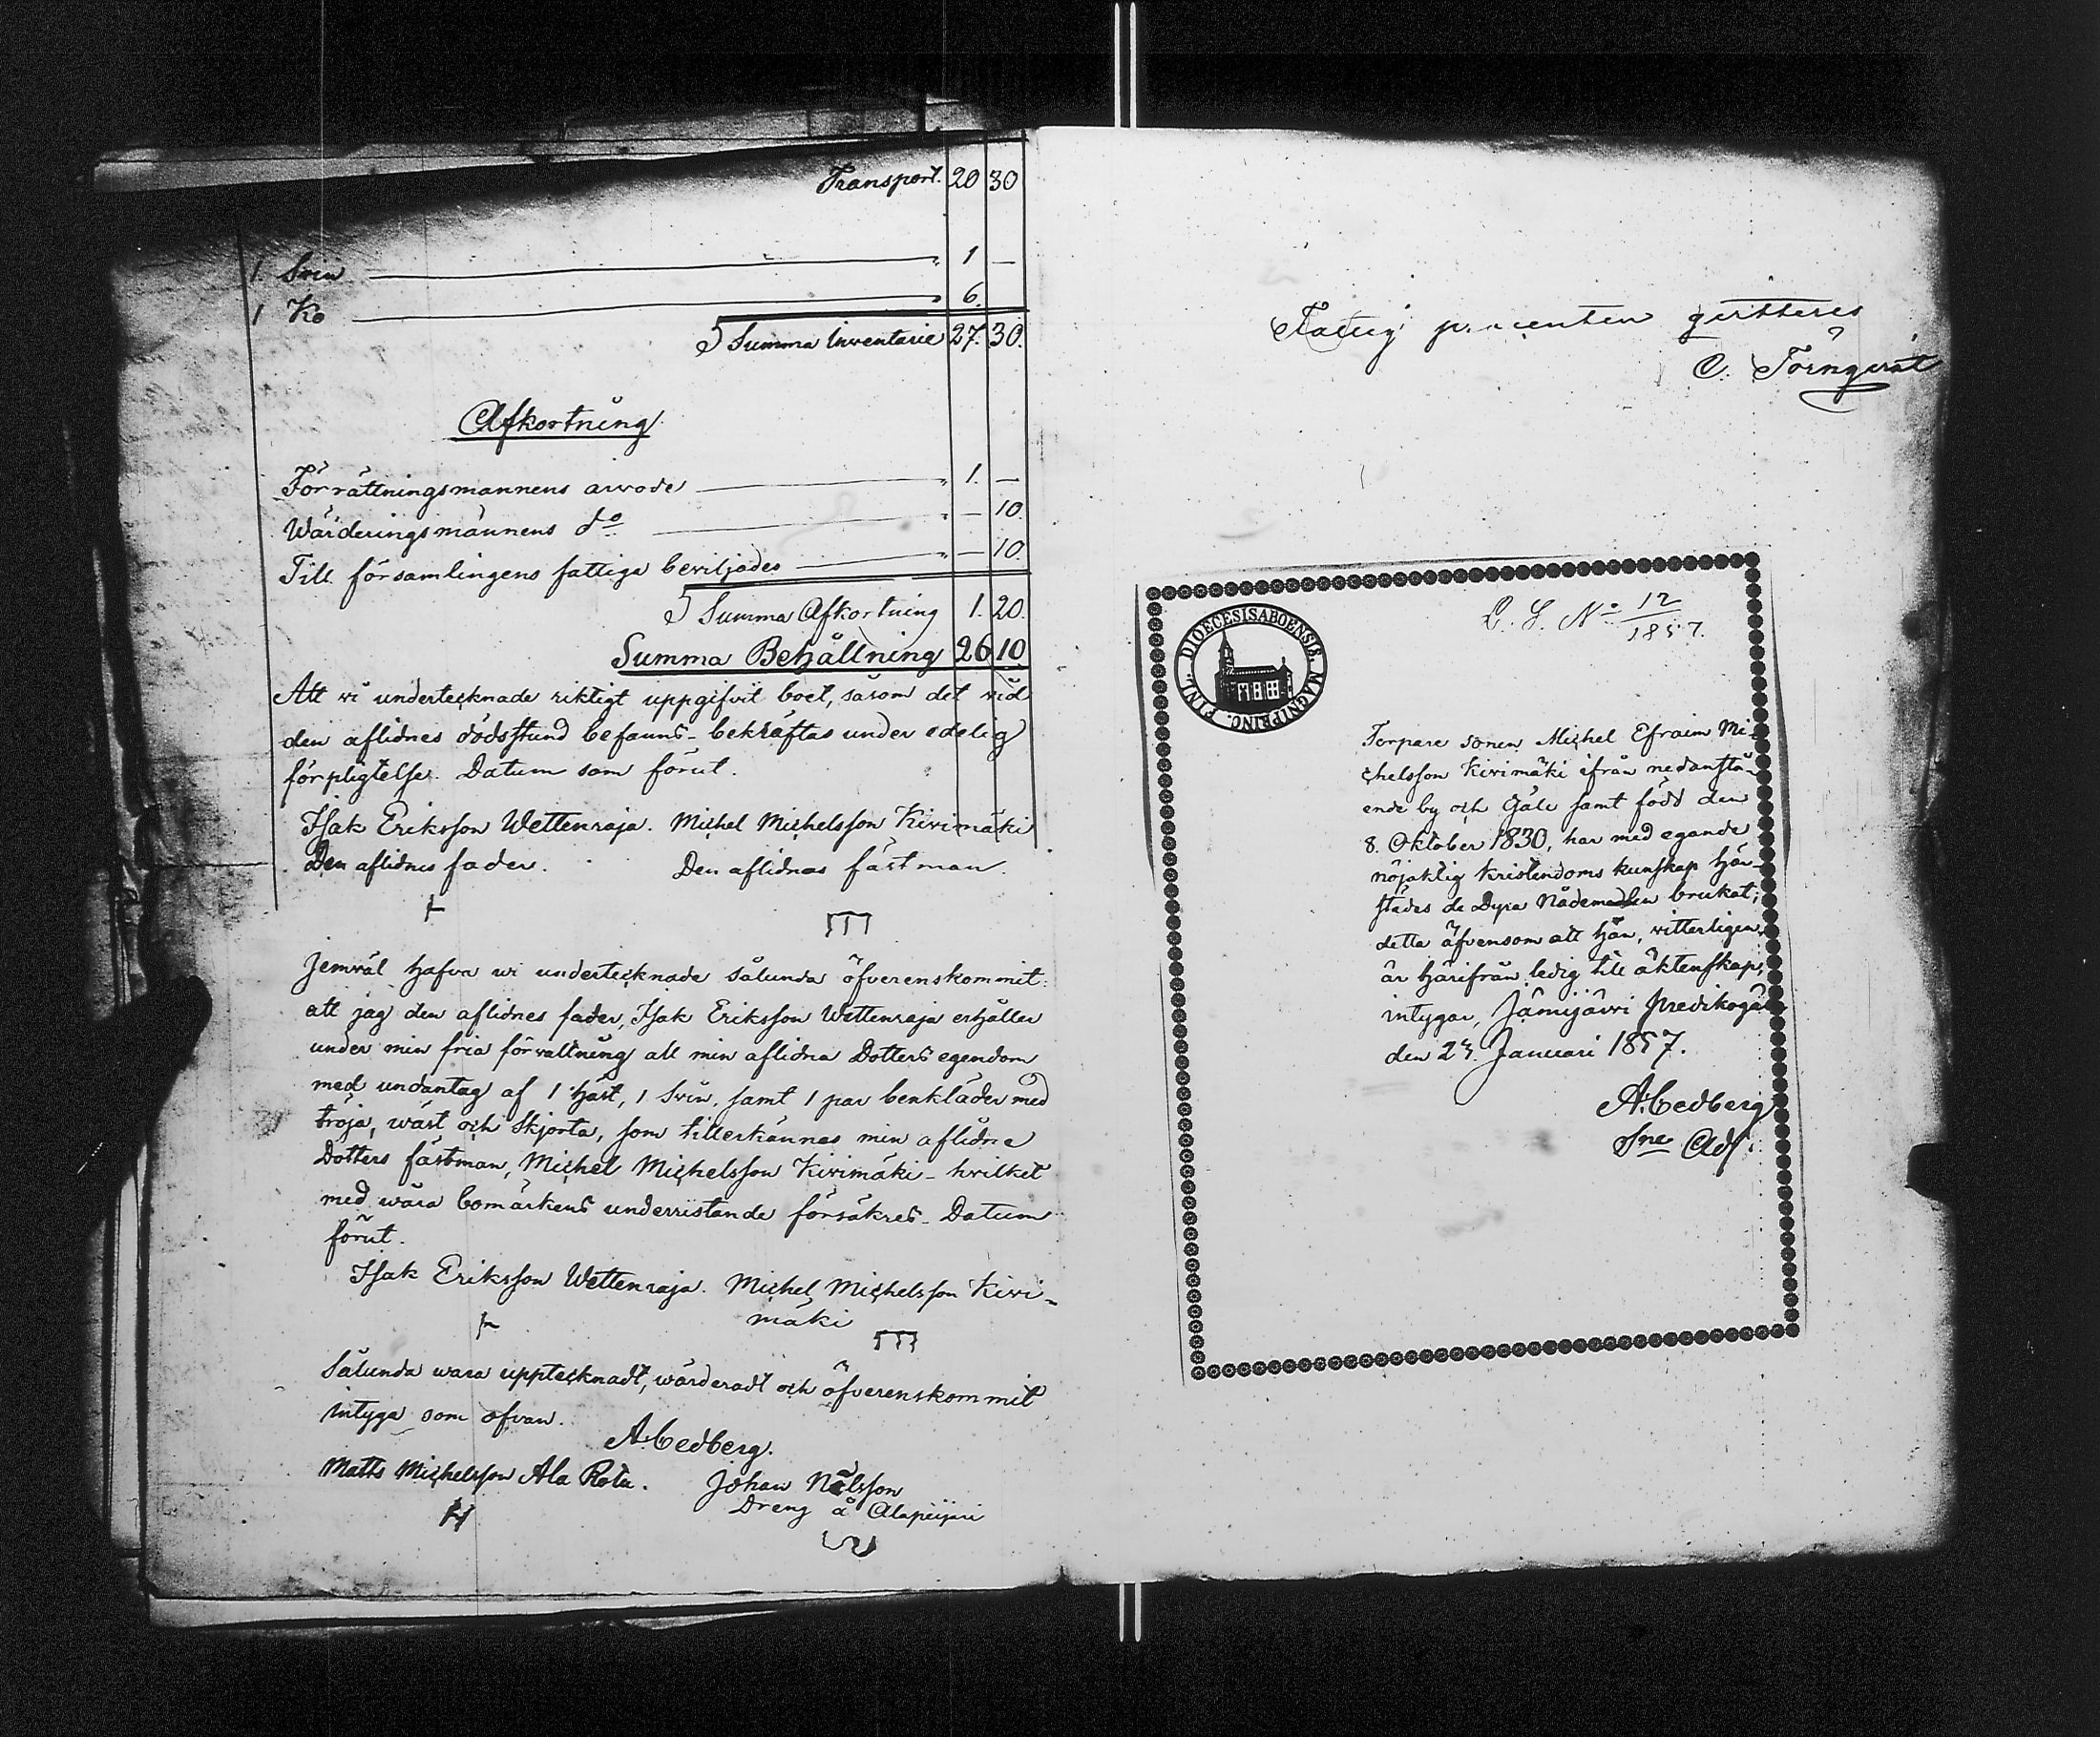 Transport. 20 30
1 Svin " 1 —
1 Ko " 6.
Summa Inventarie 27. 30.
Afkortning
Förrättningsmannens arvode " 1. —
Wärderingsmännens do " — 10.
Till församlingens fattiga beviljades " — 10.
Summa Afkortning 1. 20.
Summa Behållning 26 10
Att vi undertecknade riktigt uppgifvit boet, såsom det vid
den aflidnes dödsstund befanns - bekräftas under edelig
förpligtelse. Datum som förut.
Isak Eriksson Wettenraja. Michel Michelsson Kivimäki
Den aflidnes fader. Den aflidnas fästman.
Jemväl hafva vi undertecknade sålunda öfverenskommit:
att jag den aflidnes fader, Isak Eriksson Wettenraja erhåller
under min fria förvaltning all min aflidna Dotters egendom
med undantag af 1 häst, 1 Svin, samt 1 par benkläder med
tröja, wäst och Skjorta, som tillerkännes min aflidne
Dotters fästman, Michel Michelsson Kivimäki - hvilket
med våra bomärkens underristande försäkres. Datum
förut.
Isak Eriksson Wettenraja. Michel Michelsson Kivi-
mäki
Sålunda wara upptecknadt, wärderadt och öfverenskommit
intyga som ofvan.
A. Cedberg.
Matts Michelsson Ala Rotu. Johan Nilsson
Dreng å
Fattig procenten qvitteres
C. Törnqvist
DIOECESIS ABOENSIS. MAGNI PRINC. FINL.
L. S. No 12/1857.
Torpare sonen Michel Efraim Mi-
chelsson Kivimäki ifrån nedanstå-
ende by och Gäll samt född den
8. Oktober 1830, har med egande
nöjaktig Kristendoms kunskap här-
städes de Dyra Nådemedlen brukat;
detta äfvensom att han, vitterligen,
är härifrån ledig till äktenskap,
intygar, Jämijärvi Predikogäll
den 24. Januari 1857.
A. Cedberg
Sne Adj.